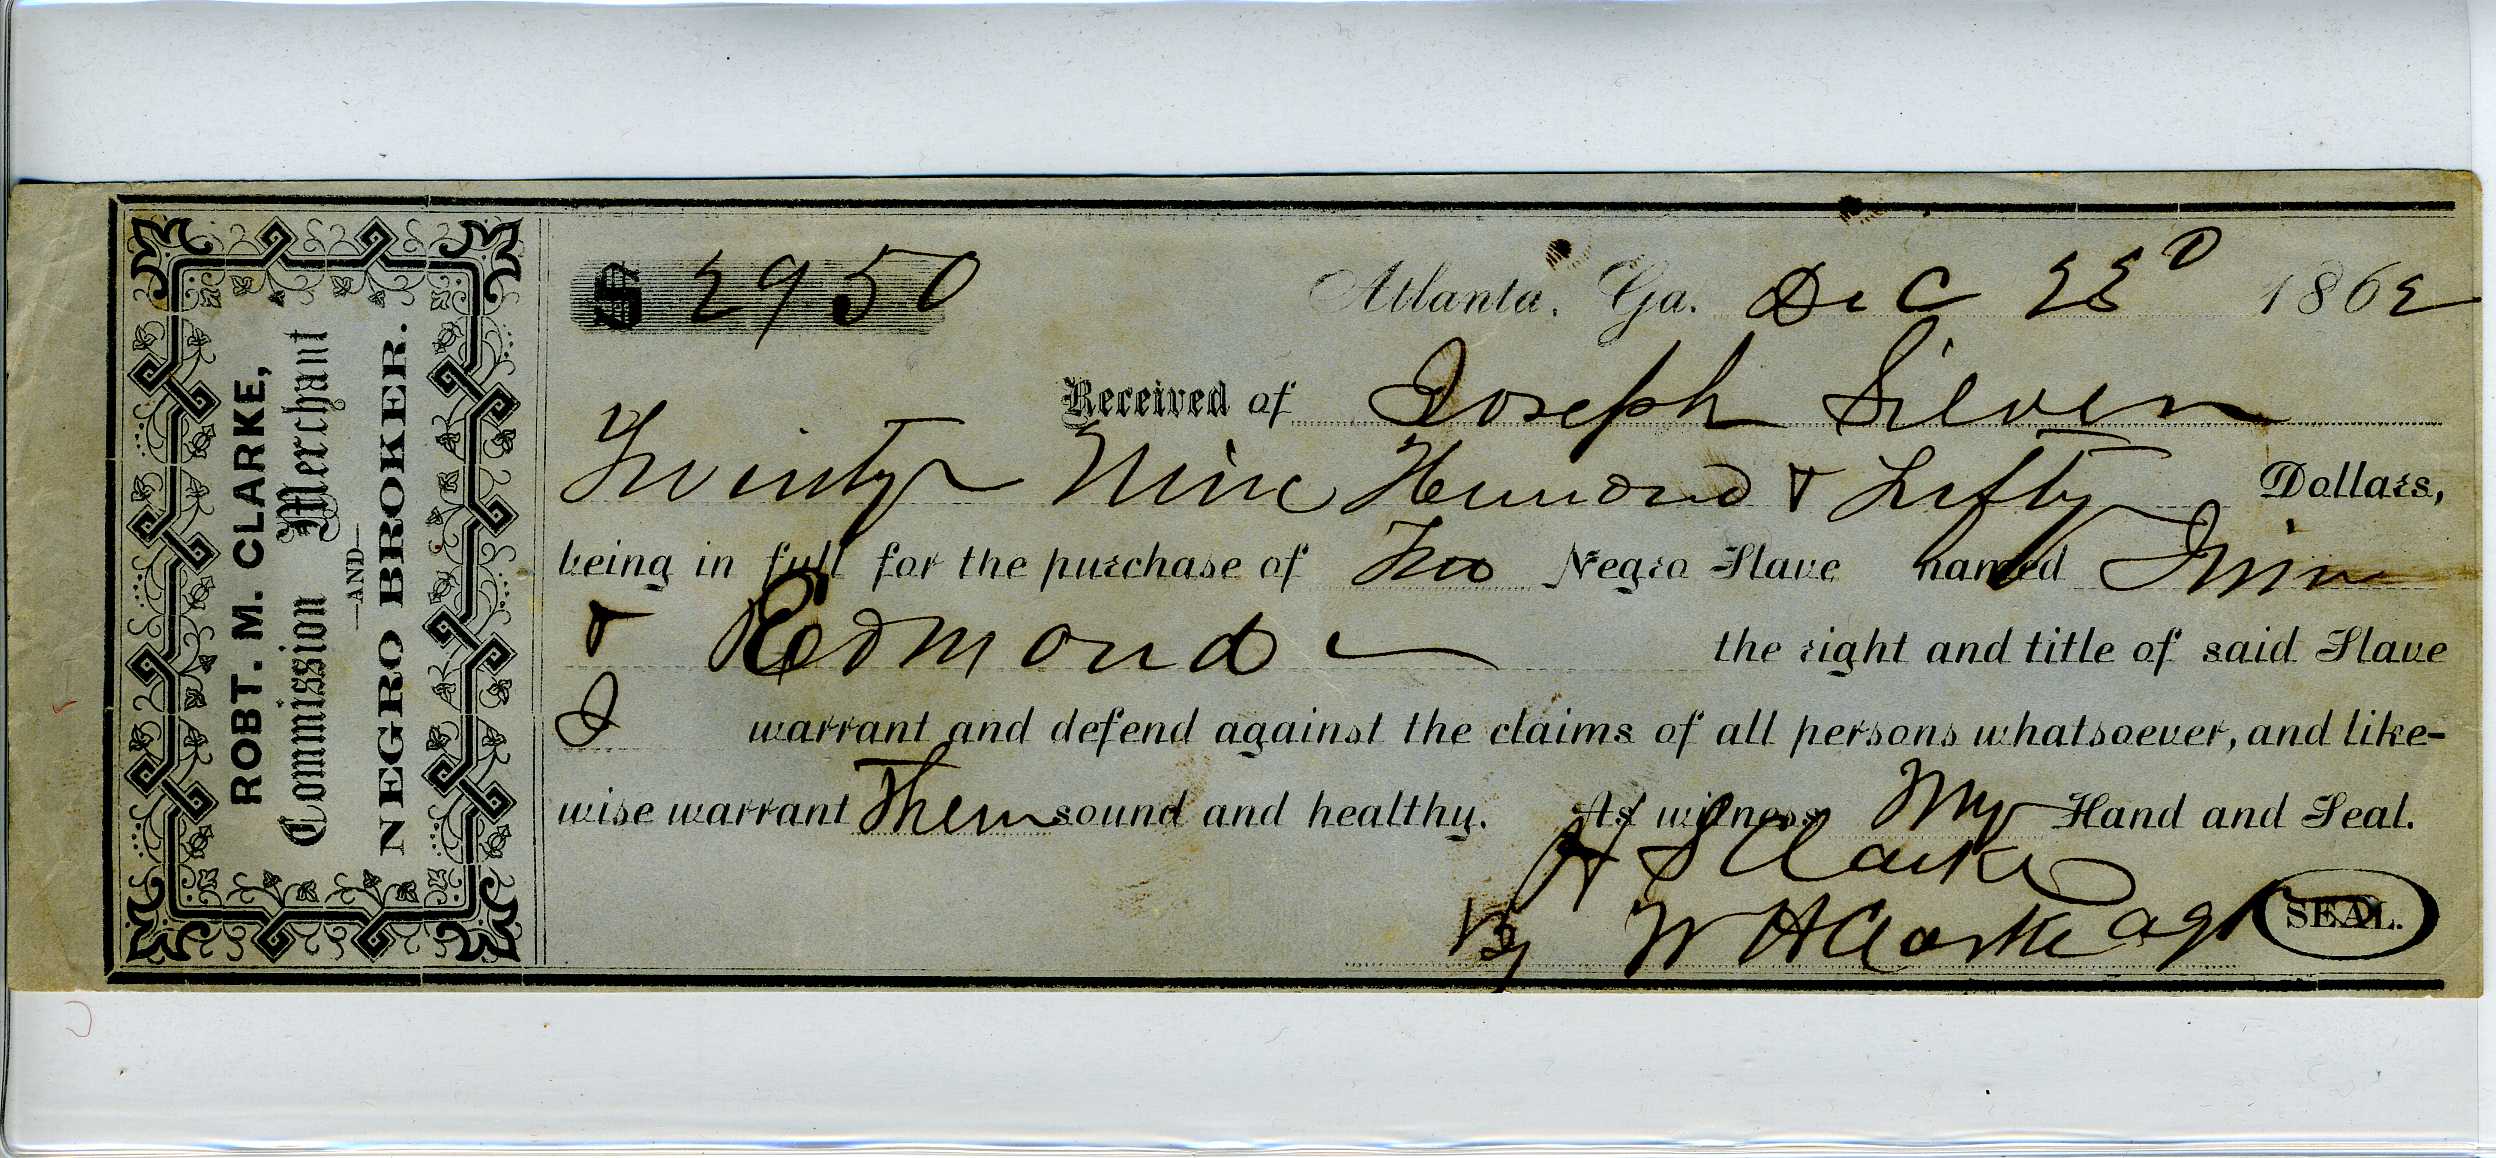 ROBT. M. CLARKE,
Commission Merchant
—AND—
NEGRO BROKER.
$ 2950 Atlanta, Ga. Dec 22D 1862
Received of Joseph Silver
Twinty Nine Hundred & Fifty Dollars,
being in full for the purchase of Two Negro Slave named Jim
& Edmond the right and title of said Slave
I warrant and defend against the claims of all persons whatsoever, and like-
wise warrant Them sound and healthy. As witness My Hand and Seal.
H S Clarke
By W H Clarke agt SEAL.